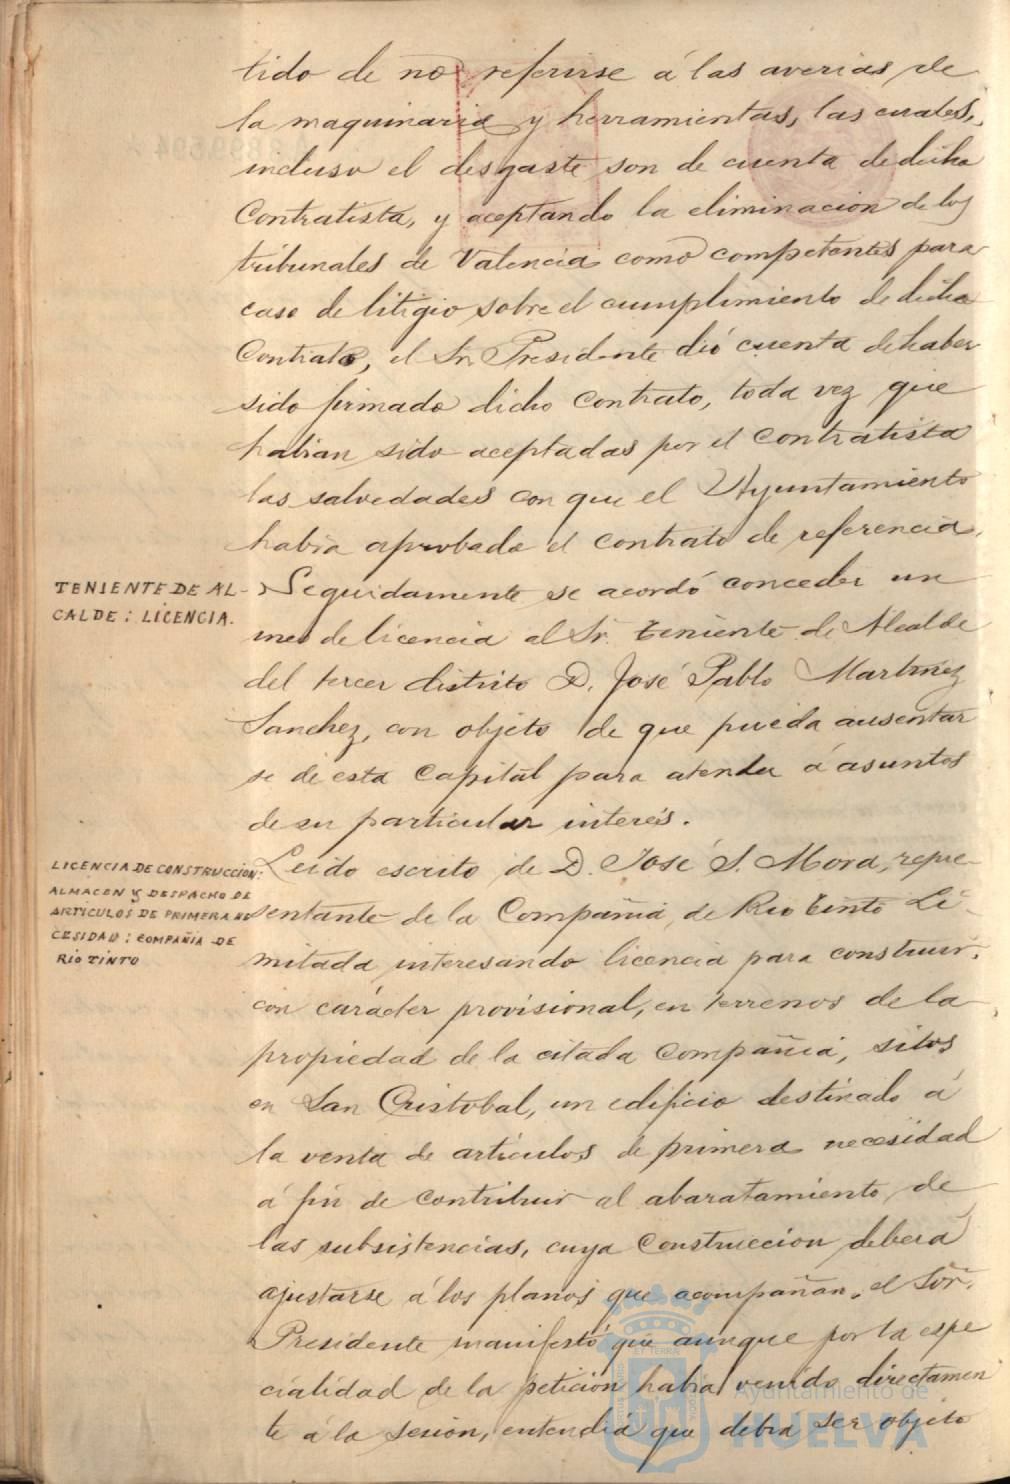 tido de no referirse á las averias de
la maquinaria y herramientas, las cuales,
incluso el desgaste son de cuenta de dicho
Contratista, y aceptando la eliminacion de los
tribunales de Valencia como competentes para
caso de litigio sobre el cumplimiento de dicho
Contrato, el Sr. Presidente dió cuenta de haber
sido firmado dicho contrato, toda vez que
habian sido aceptadas por el contratista
las salvedades con que el Ayuntamiento
habia aprobado el contrato de referencia.
TENIENTE DE AL-
CALDE: LICENCIA.
Seguidamente se acordó conceder un
mes de licencia al Sr. Teniente de Alcalde
del tercer distrito D. José Pablo Martinez
Sanchez, con objeto de que pueda ausentar
se de esta Capital para atender á asuntos
de su particular interés.
LICENCIA DE CONSTRUCCION:
ALMACEN Y DESPACHO DE
ARTICULOS DE PRIMERA NE
CESIDAD: COMPAÑIA DE
RIO TINTO
Leido escrito de D. José S. Mora, repre-
sentante de la Compañia de Rio Tinto Li-
mitada interesando licencia para construir,
con carácter provisional, en terrenos de la
propiedad de la citada Compañia, sitos
en San Cristobal, un edificio destinado á
la venta de articulos de primera necesidad
á fin de contribuir al abaratamiento de
las subsistencias, cuya construccion deberá
ajustarse á los planos que acompañan, el Sor.
Presidente manifestó que aunque por la espe
cialidad de la peticion habia venido directamen
te á la sesion, entendia que debia ser objeto
Ayuntamiento de
HUELVA